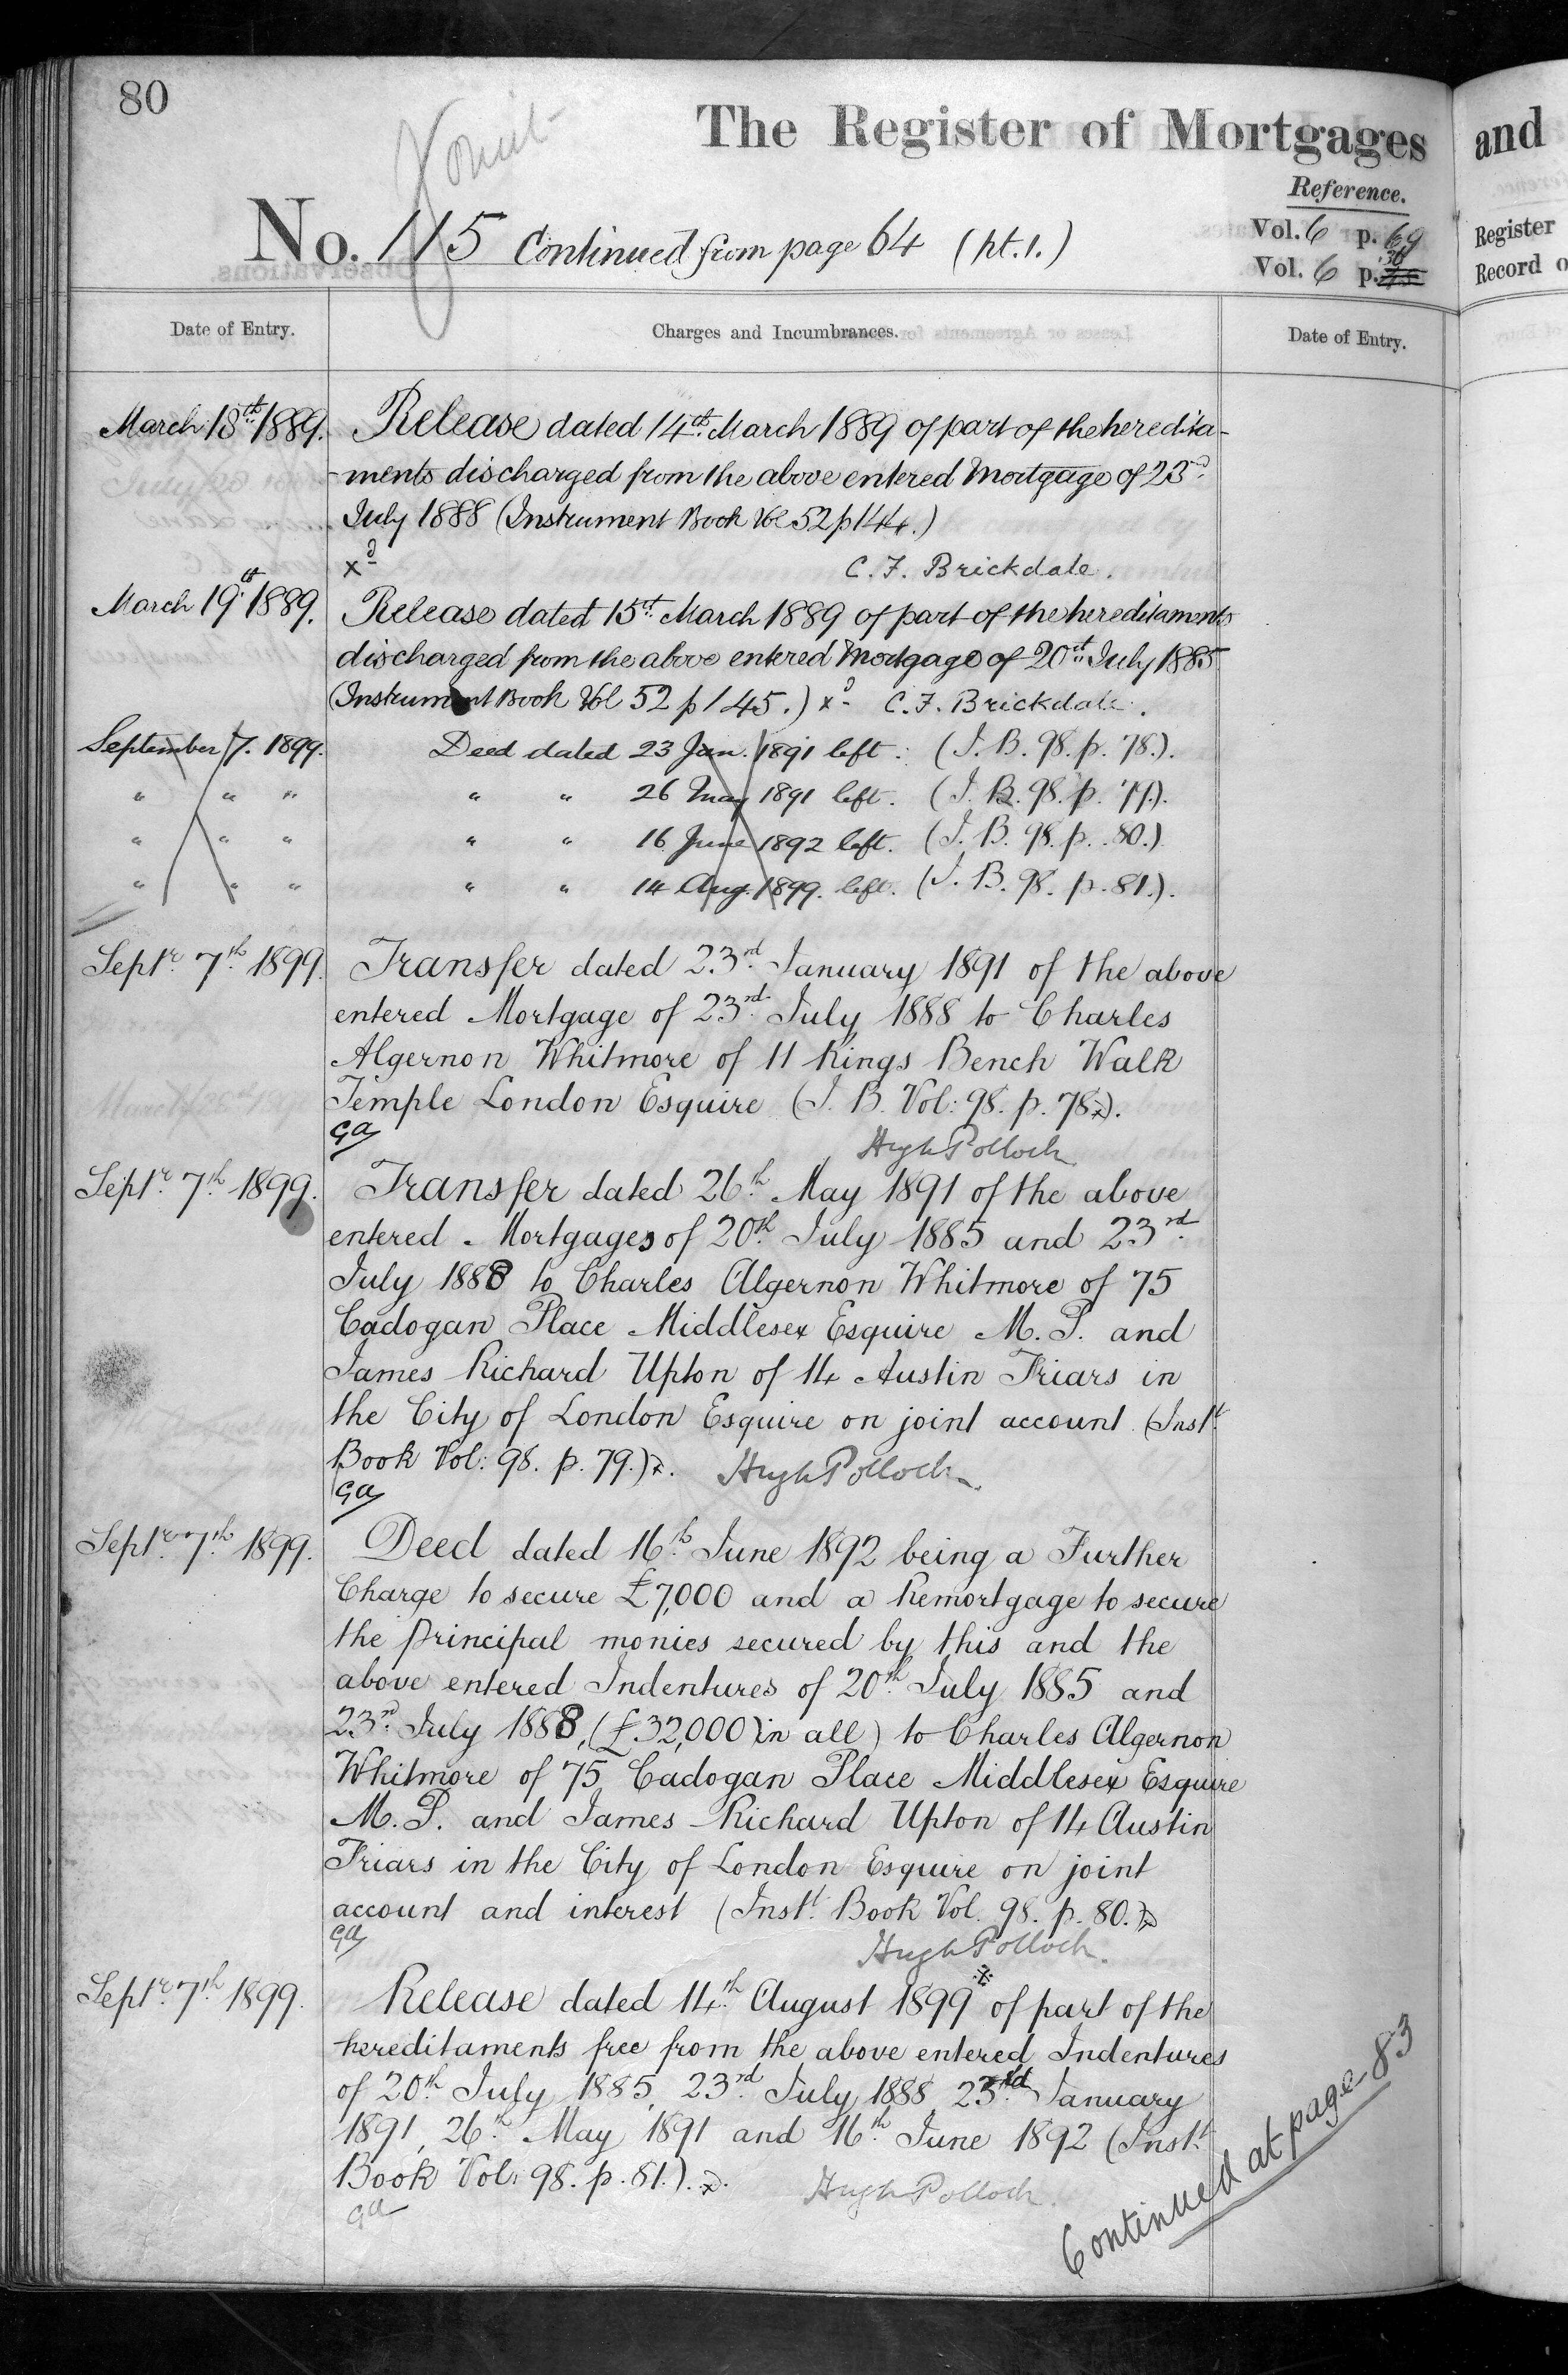 80
The Register of Mortgages
and
Reference.
No. 115 Continued from page 64 (pt. 1.)
Vol. 6 p. 69
Vol. 6 p. 36
Register
Record o
Date of Entry.
Charges and Incumbrances.
Date of Entry.
March 18th 1889. Release dated 14th March 1889 of part of the heredita-
-ments discharged from the above entered Mortgage of 23rd
July 1888 (Instrument Book Vol 52 p 144.)
xd C. F. Brickdale.
March 19th 1889. Release dated 15th March 1889 of part of the hereditaments
discharged from the above entered Mortgage of 20th July 1885
(Instrument Book Vol 52 p 145.) xd C. F. Brickdale.
September 7. 1899. Deed dated 23 Jan. 1891 left. (I. B. 98. p. 78.).
" " " " " 26 May 1891 left. (I. B. 98. p. 79.).
" " " " " 16 June 1892 left. (I. B. 98. p. 80.)
" " " " " 14 Aug. 1899. left. (I. B. 98. p. 81.).
Septr. 7th 1899. Transfer dated 23rd January 1891 of the above
entered Mortgage of 23rd July 1888 to Charles
Algernon Whitmore of 11 Kings Bench Walk
Temple London Esquire (I. B. Vol: 98. p. 78x).
Ga Hugh Pollock
Septr. 7th 1899. Transfer dated 26th May 1891 of the above
entered Mortgages of 20th July 1885 and 23rd
July 1888 to Charles Algernon Whitmore of 75
Cadogan Place Middlesex Esquire M. P. and
James Richard Upton of 14 Austin Friars in
the City of London Esquire on joint account (Instt.
Book Vol: 98. p. 79.)x. Hugh Pollock
Ga
Septr. 7th 1899. Deed dated 16th June 1892 being a Further
Charge to secure £7,000 and a Remortgage to secure
the principal monies secured by this and the
above entered Indentures of 20th July 1885 and
23rd July 1888, (£32,000 in all) to Charles Algernon
Whitmore of 75 Cadogan Place Middlesex Esquire
M. P. and James Richard Upton of 14 Austin
Friars in the City of London Esquire on joint
account and interest (Instt. Book Vol. 98. p. 80.)x
Ga Hugh Pollock.
Septr. 7th 1899. Release dated 14th August 1899 of part of the
hereditaments free from the above entered Indentures
of 20th July 1885, 23rd July 1888, 23rd January
1891, 26th May 1891 and 16th June 1892 (Instt.
Book Vol: 98. p. 81.).x. Hugh Pollock.
Ga
Continued at page 83